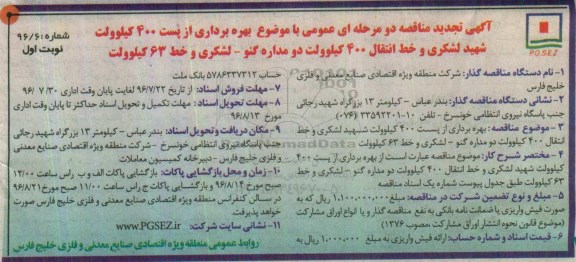 آگهی تجدید مناقصه دو مرحله ای عمومی با موضوع بهره برداری از پست ۴۰۰ کیلوولت
شهید لشکری و خط انتقال ۴۰۰ کیلوولت دو مداره گنو - لشکری و خط ۶۳ کیلوولت
شماره: ۹۶/۶
نوبت اول
P.G.SEZ
۱- نام دستگاه مناقصه گذار: شرکت منطقه ویژه اقتصادی صنایع معدنی و فلزی
خلیج فارس
۲- نشانی دستگاه مناقصه گذار: بندر عباس - کیلومتر ۱۳ بزرگراه شهید رجائی
جنب پاسگاه نیروی انتظامی خونسرخ - تلفن ۱۰-۳۳۵۹۲۲۰۱ (۰۷۶)
۳- موضوع مناقصه: بهره برداری از پست ۴۰۰ کیلوولت شهید لشکری و خط
انتقال ۴۰۰ کیلوولت دو مداره گنو - لشکری و خط ۶۳ کیلوولت
۴- مختصر شرح کار: موضوع مناقصه عبارت است از بهره برداری از پست ۴۰۰
کیلوولت شهید لشکری و خط انتقال ۴۰۰ کیلوولت دو مداره گنو - لشکری و خط
۶۳ کیلوولت طبق جدول پیوست شماره یک اسناد مناقصه
۵- مبلغ و نوع تضمین شرکت در مناقصه: مبلغ ۱,۱۰۰,۰۰۰,۰۰۰ ریال به
صورت فیش واریزی یا ضمانت نامه بانکی به نفع مناقصه گذار و یا انواع اوراق مشارکت
(موضوع قانون نحوه انتشار اوراق مشارکت، مصوب ۱۳۷۶)
۶- قیمت اسناد و شماره حساب: ارائه فیش واریزی به مبلغ ۱,۰۰۰,۰۰۰ ریال به
حساب ۵۷۸۶۳۳۷۳۱۲ بانک ملت
۷- مهلت فروش اسناد: از تاریخ ۹۶/۷/۲۲ لغایت پایان وقت اداری ۹۶/۷/۳۰
۸- مهلت تحویل اسناد: مهلت تکمیل و تحویل اسناد حداکثر تا پایان وقت اداری
مورخ ۹۶/۸/۱۳
۹- مکان دریافت و تحویل اسناد: بندر عباس - کیلومتر ۱۳ بزرگراه شهید رجائی
جنب پاسگاه نیروی انتظامی خونسرخ - شرکت منطقه ویژه اقتصادی صنایع معدنی
و فلزی خلیج فارس - دبیرخانه کمیسیون معاملات
۱۰- زمان و محل بازگشایی پاکات: بازگشایی پاکات الف و ب راس ساعت ۱۲/۰۰
صبح مورخ ۹۶/۸/۱۴ و بازگشایی پاکات ج راس ساعت ۱۱/۰۰ صبح مورخ ۹۶/۸/۲۱
در سالن کنفرانس منطقه ویژه اقتصادی صنایع معدنی و فلزی خلیج فارس صورت
خواهد پذیرفت.
۱۱- نشانی سایت شرکت: www.PGSEZ.ir
روابط عمومی منطقه ویژه اقتصادی صنایع معدنی و فلزی خلیج فارس